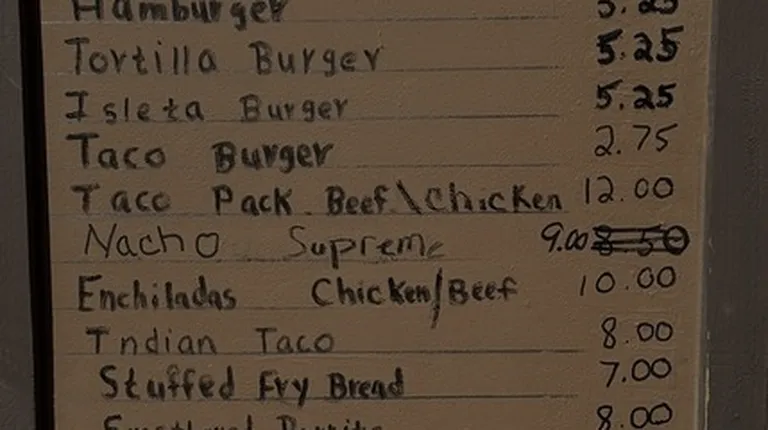 Hamburger 5.25
Tortilla Burger 5.25
Isleta Burger 5.25
Taco Burger 2.75
Taco Pack Beef\Chicken 12.00
Nacho Supreme 9.00 8.50
Enchiladas Chicken/Beef 10.00
Indian Taco 8.00
Stuffed Fry Bread 7.00
8.00